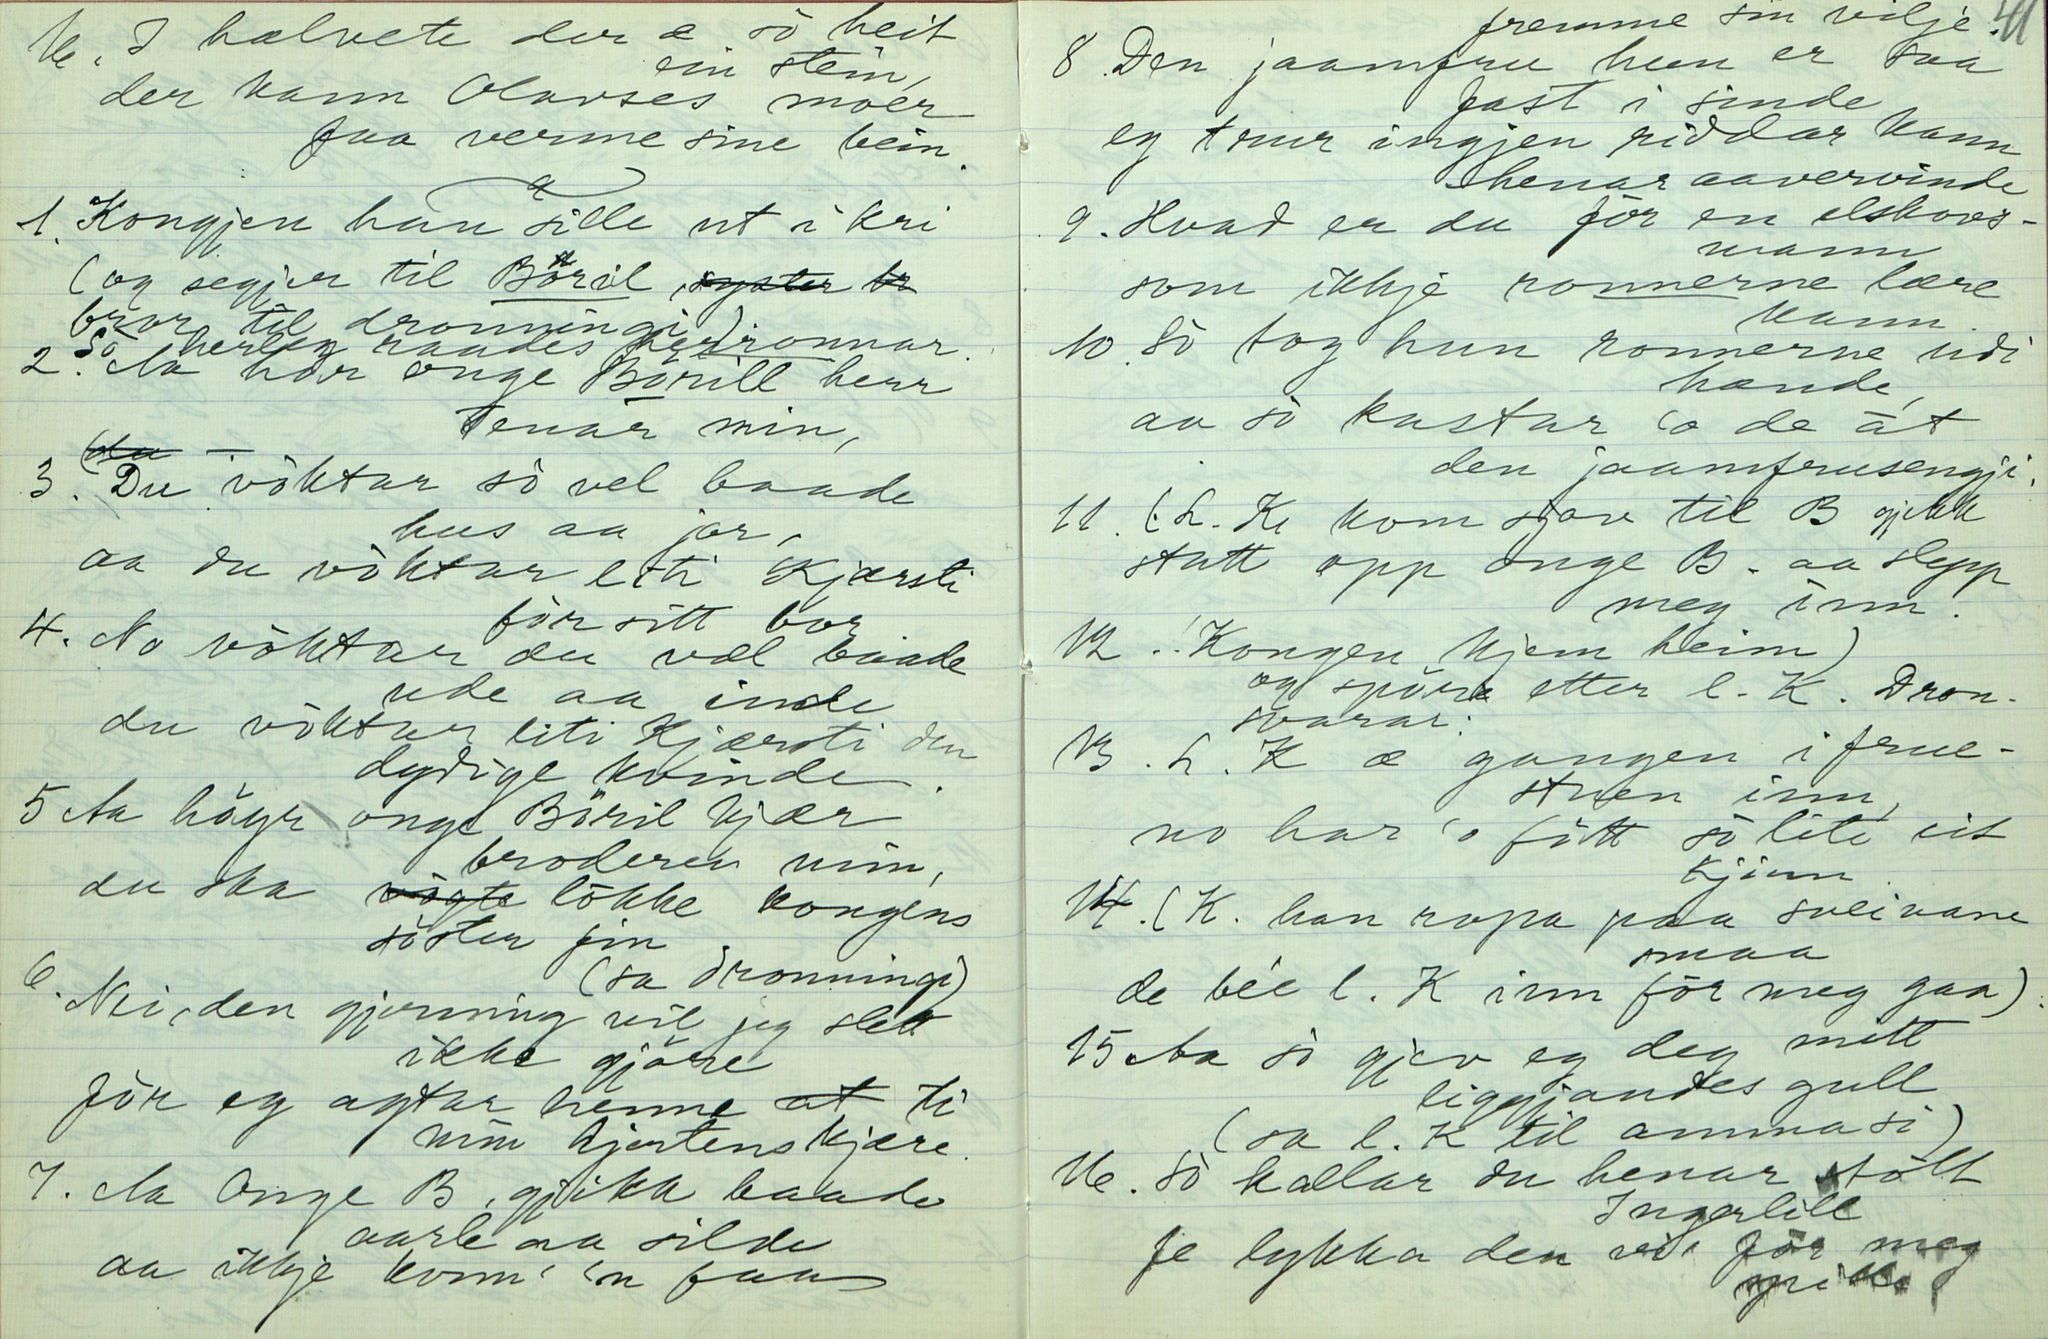 16. I hælvete der æ so heit
ein stein,
der kann Olavses moer
faa verme sine bein.
1. Kongjen han sille ut i kri
(og segjer til Böril, syster
bror til dronningi)
So herleg raades her ronnar.
2. Aa hör onge Börill herr
Tenar min,
(du —
3. Du vöktar so vel baade
hus aa jor,
aa du vöktar liti Kjærsti
för sitt bor
4. No vöktar du væl baade
ude aa inde
du vöktar liti Kjærsti den
dydige kvinde.
5 Aa höyr onge Böril kjær
broderen min,
du ska vögte lökke kongens
söster fin
(sa dronningi)
6. Nei, den gjerning vil jeg slett
ikke gjöre
för eg agtar henne at ti
min hjertenskjære.
7. Aa Onge B. gjikk baade
aarle aa silde
aa ikkje konn' 'n faa
fremme sin vilje.
41
8. Den jaamfru hun er saa
fast i sinde
eg trur ingjen riddar kann
henar aavervinde
9. Hvad er du för en elskovs-
mann
som ikkje ronnerne lære
kann.
10. So tog hun ronnerne udi
hænde,
aa so kastar 'o de åt
den jaamfrusengji.
11. (L. K. kom sjav til B gjekk
statt opp onge B. aa slepp
meg inn.
12. Kongen kjem heim)
og spörr etter l. K. Dron.
svarar:
13. L. K æ gangen i frue-
stuen inn,
no har 'o fött so lite eit
kjinn.
14. (K. han ropa paa sveinane
smaa
de bée l. K inn för meg gaa).
15 Aa so gjev eg deg mitt
liggjandes gull
(sa l. K til amma si)
16. So kallar du henar stolt
Ingerlill
Je lykka den vi' för meg